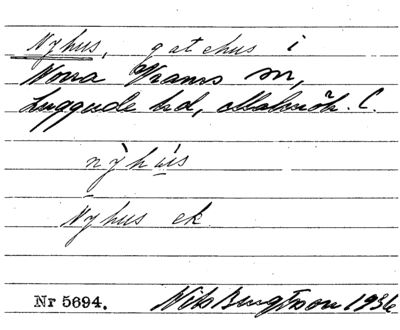 Nyhus, gatehus i
Norra Vrams sn,
Luggude hd, Malmöh. C.
nỳhùs
Nyhus ek.
Nr 5694. Nils Bengtsson 1936